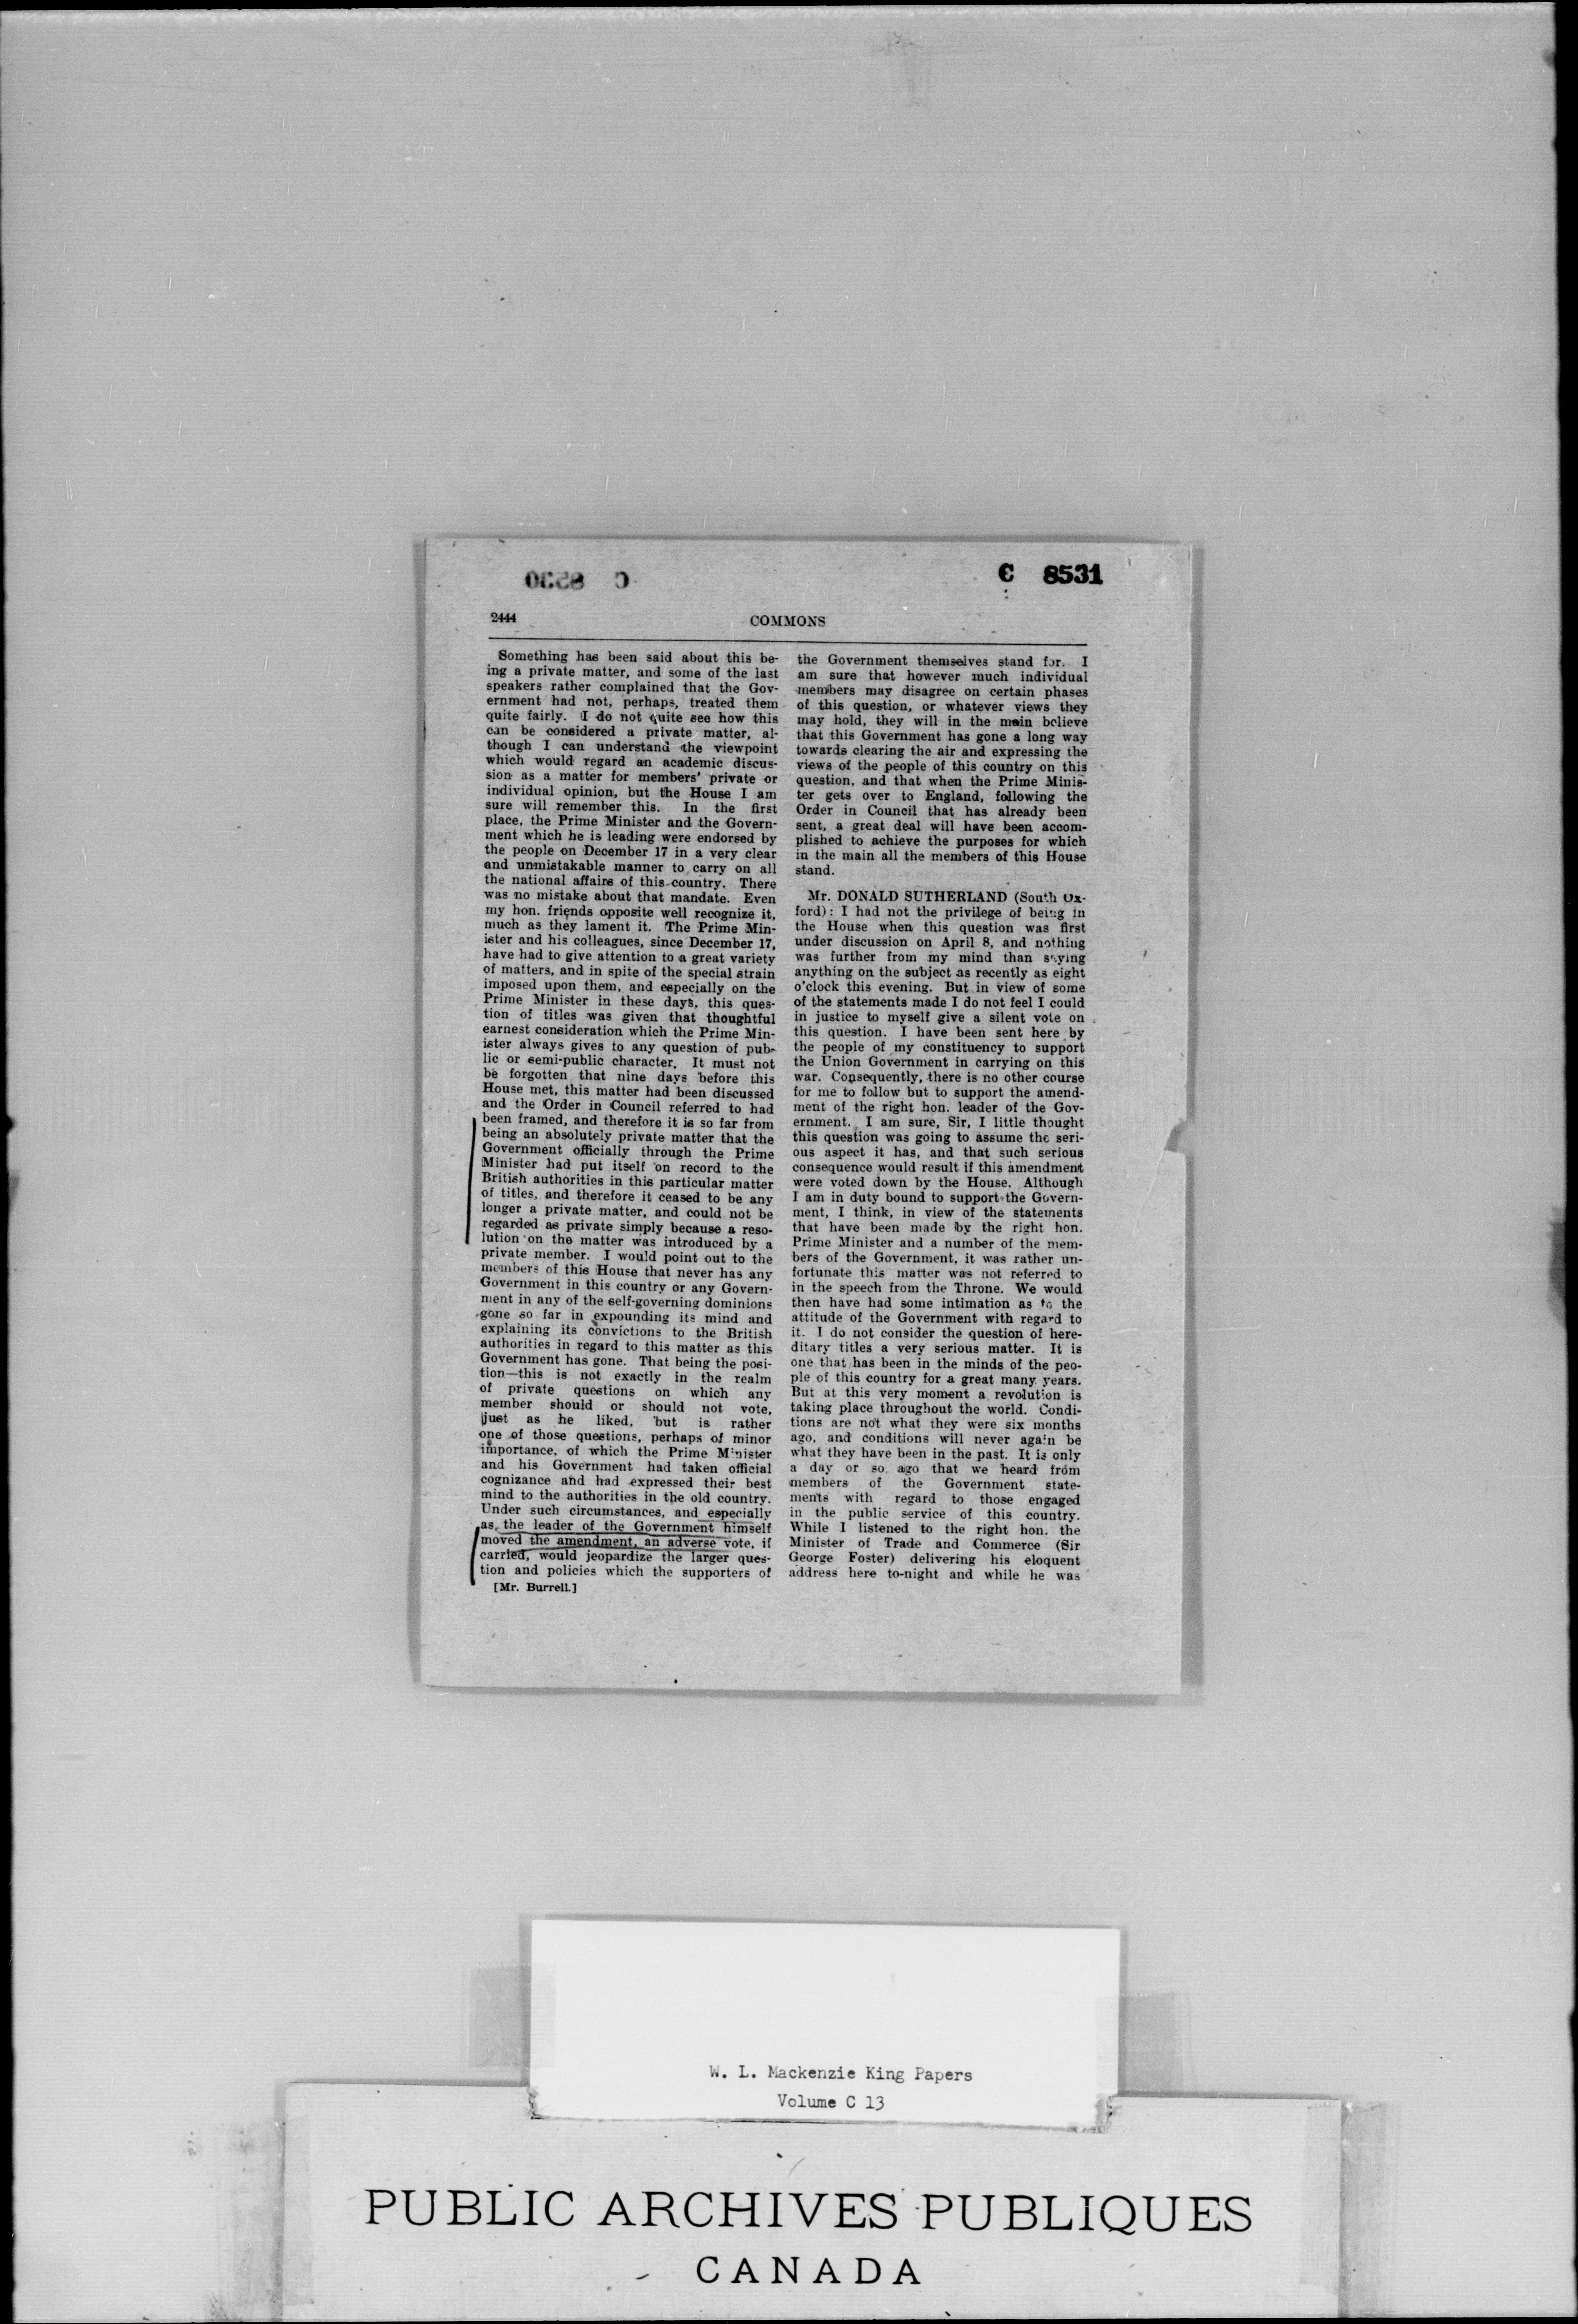 C 8531
2444
COMMONS
Something has been said about this be-
ing a private matter, and some of the last
speakers rather complained that the Gov-
ernment had not, perhaps, treated them
quite fairly. I do not quite see how this
can be considered a private matter, al-
though I can understand the viewpoint
which would regard an academic discus-
sion as a matter for members' private or
individual opinion, but the House I am
sure will remember this. In the first
place, the Prime Minister and the Govern-
ment which he is leading were endorsed by
the people on December 17 in a very clear
and unmistakable manner to carry on all
the national affairs of this country. There
was no mistake about that mandate. Even
my hon. friends opposite well recognize it,
much as they lament it. The Prime Min-
ister and his colleagues, since December 17,
have had to give attention to a great variety
of matters, and in spite of the special strain
imposed upon them, and especially on the
Prime Minister in these days, this ques-
tion of titles was given that thoughtful
earnest consideration which the Prime Min-
ister always gives to any question of pub-
lic or semi-public character. It must not
be forgotten that nine days before this
House met, this matter had been discussed
and the Order in Council referred to had
been framed, and therefore it is so far from
being an absolutely private matter that the
Government officially through the Prime
Minister had put itself on record to the
British authorities in this particular matter
of titles, and therefore it ceased to be any
longer a private matter, and could not be
regarded as private simply because a reso-
lution on the matter was introduced by a
private member. I would point out to the
members of this House that never has any
Government in this country or any Govern-
ment in any of the self-governing dominions
gone so far in expounding its mind and
explaining its convictions to the British
authorities in regard to this matter as this
Government has gone. That being the posi-
tion—this is not exactly in the realm
of private questions on which any
member should or should not vote,
just as he liked, but is rather
one of those questions, perhaps of minor
importance, of which the Prime Minister
and his Government had taken official
cognizance and had expressed their best
mind to the authorities in the old country.
Under such circumstances, and especially
as the leader of the Government himself
moved the amendment, an adverse vote, if
carried, would jeopardize the larger ques-
tion and policies which the supporters of
[Mr. Burrell.]
the Government themselves stand for. I
am sure that however much individual
members may disagree on certain phases
of this question, or whatever views they
may hold, they will in the main believe
that this Government has gone a long way
towards clearing the air and expressing the
views of the people of this country on this
question, and that when the Prime Minis-
ter gets over to England, following the
Order in Council that has already been
sent, a great deal will have been accom-
plished to achieve the purposes for which
in the main all the members of this House
stand.
Mr. DONALD SUTHERLAND (South Ox-
ford): I had not the privilege of being in
the House when this question was first
under discussion on April 8, and nothing
was further from my mind than saying
anything on the subject as recently as eight
o'clock this evening. But in view of some
of the statements made I do not feel I could
in justice to myself give a silent vote on
this question. I have been sent here by
the people of my constituency to support
the Union Government in carrying on this
war. Consequently, there is no other course
for me to follow but to support the amend-
ment of the right hon. leader of the Gov-
ernment. I am sure, Sir, I little thought
this question was going to assume the seri-
ous aspect it has, and that such serious
consequence would result if this amendment
were voted down by the House. Although
I am in duty bound to support the Govern-
ment, I think, in view of the statements
that have been made by the right hon.
Prime Minister and a number of the mem-
bers of the Government, it was rather un-
fortunate this matter was not referred to
in the speech from the Throne. We would
then have had some intimation as to the
attitude of the Government with regard to
it. I do not consider the question of here-
ditary titles a very serious matter. It is
one that has been in the minds of the peo-
ple of this country for a great many years.
But at this very moment a revolution is
taking place throughout the world. Condi-
tions are not what they were six months
ago, and conditions will never again be
what they have been in the past. It is only
a day or so ago that we heard from
members of the Government state-
ments with regard to those engaged
in the public service of this country.
While I listened to the right hon. the
Minister of Trade and Commerce (Sir
George Foster) delivering his eloquent
address here to-night and while he was
W. L. Mackenzie King Papers
Volume C 13
PUBLIC ARCHIVES PUBLIQUES
CANADA